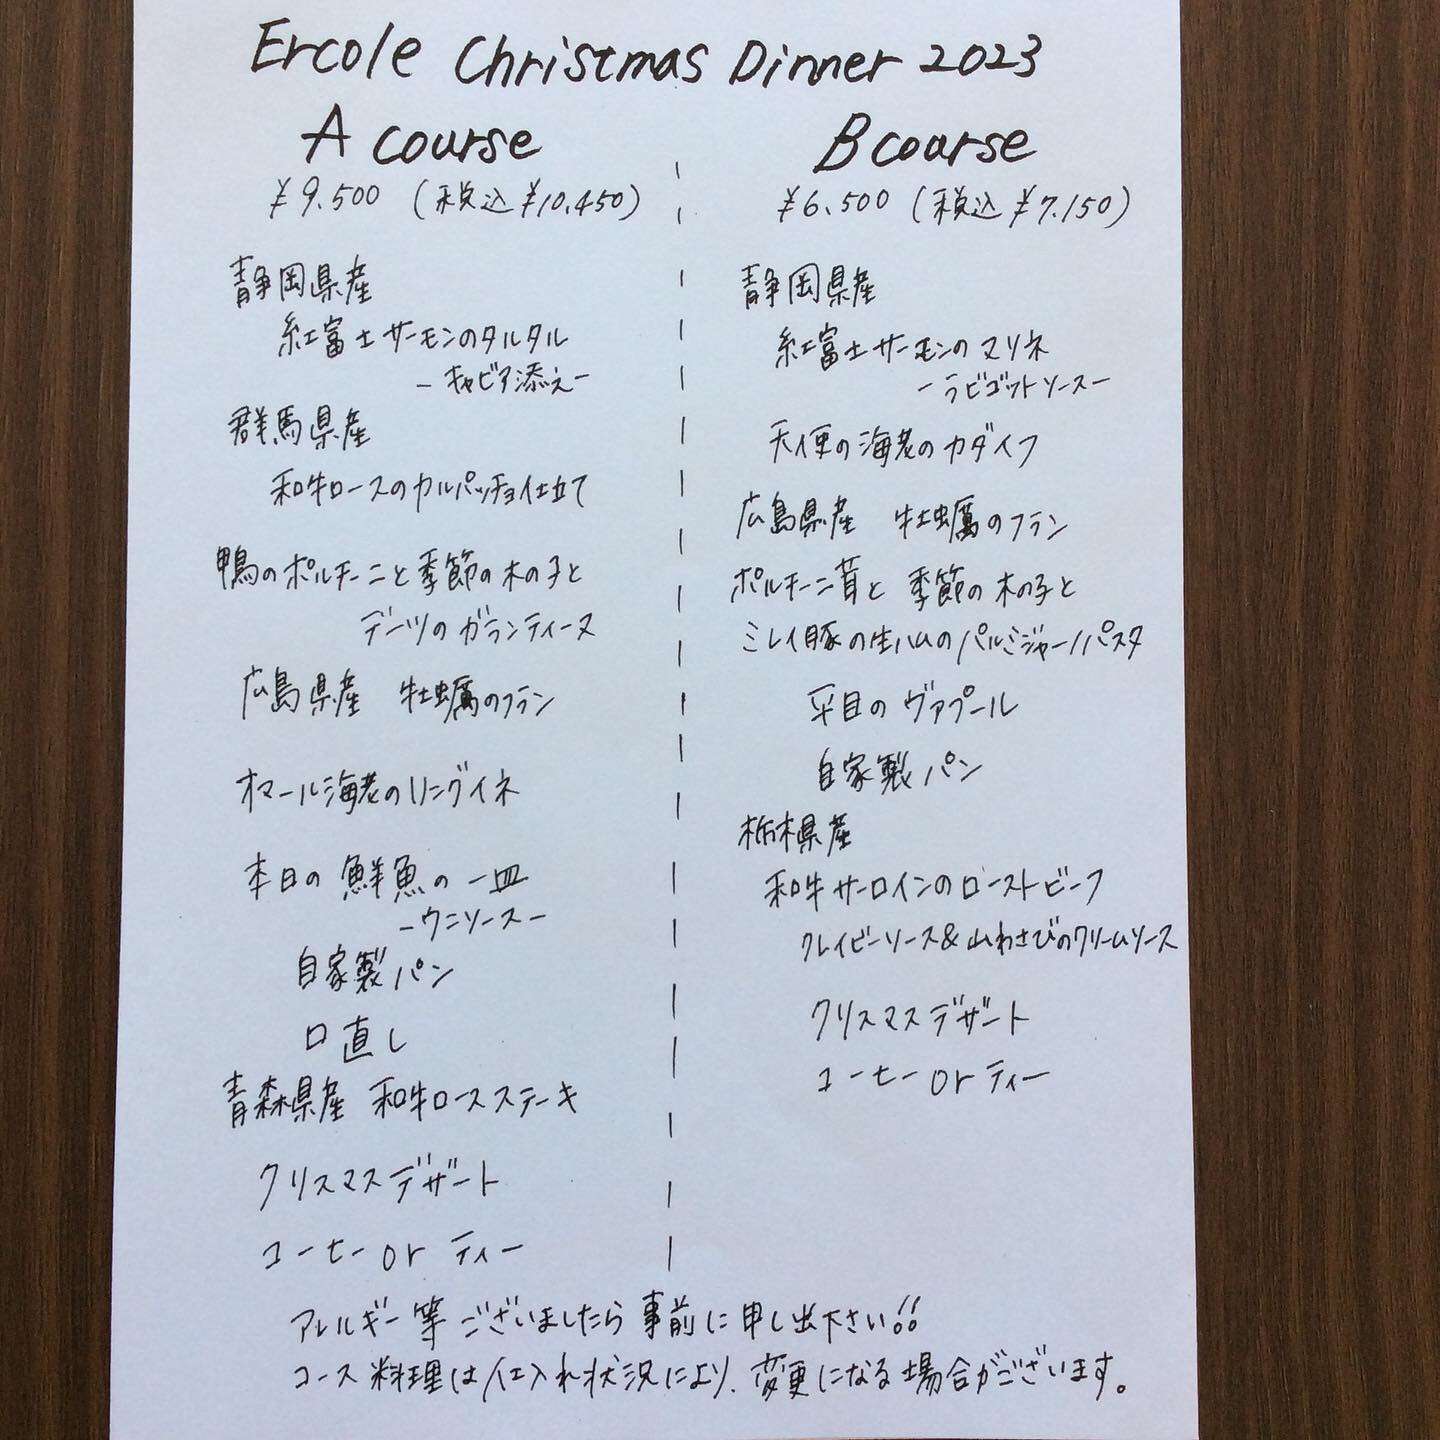 Ercole Christmas Dinner 2023
A course
¥9.500 (税込¥10.450)
静岡県産
紅富士サーモンのタルタル
-キャビア添え-
群馬県産
和牛ロースのカルパッチョ仕立て
鴨のポルチーニと季節の木の子と
デーツのガランティーヌ
広島県産 牡蠣のフラン
オマール海老のリングイネ
本日の鮮魚の一皿
-ウニソース-
自家製パン
口直し
青森県産 和牛ロースステーキ
クリスマスデザート
コーヒー or ティー
B course
¥6.500 (税込¥7.150)
静岡県産
紅富士サーモンのマリネ
-ラビゴットソース-
天使の海老のカダイフ
広島県産 牡蠣のフラン
ポルチーニ茸と季節の木の子と
ミレイ豚の生ハムのパルミジャーノパスタ
平目のヴァプール
自家製パン
栃木県産
和牛サーロインのローストビーフ
グレイビーソース&山わさびのクリームソース
クリスマスデザート
コーヒー or ティー
アレルギー等ございましたら事前に申し出下さい!!
コース料理は仕入れ状況により、変更になる場合がございます。